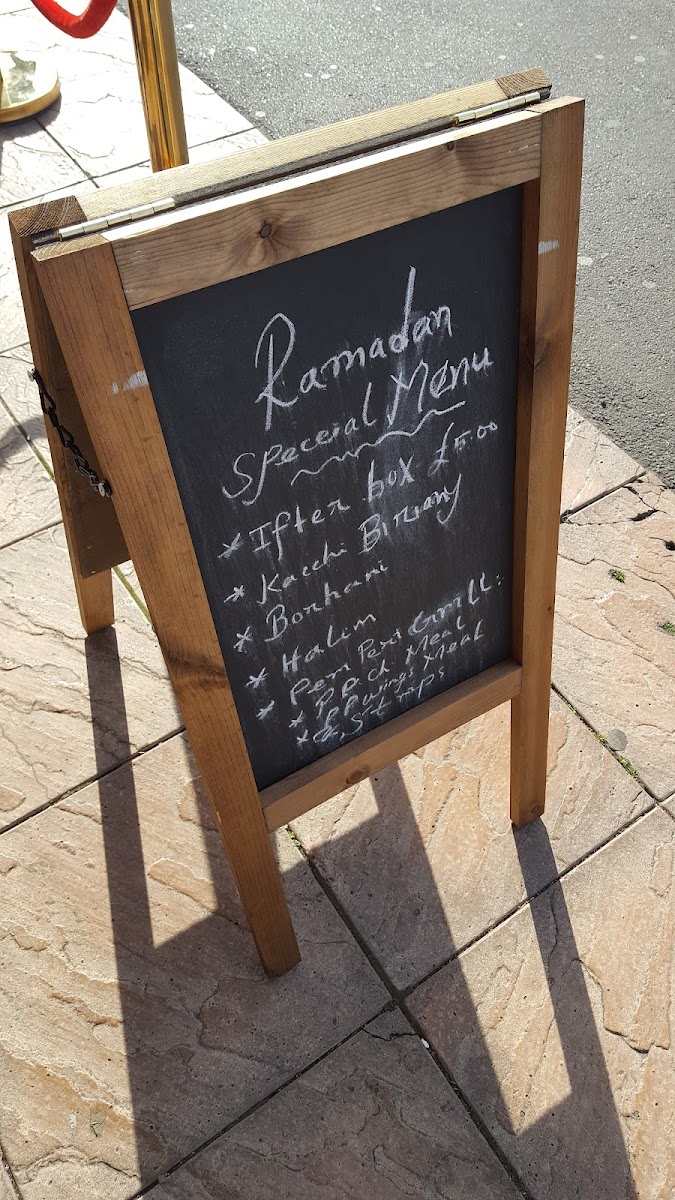 Ramadan
Speceial Menu
* Ifter box £5.00
* Kacchi Biriany
* Borhani
* Halim
* Peri Peri Grill:
* PP Chi Meal
* PP Wings Meal
* Strips